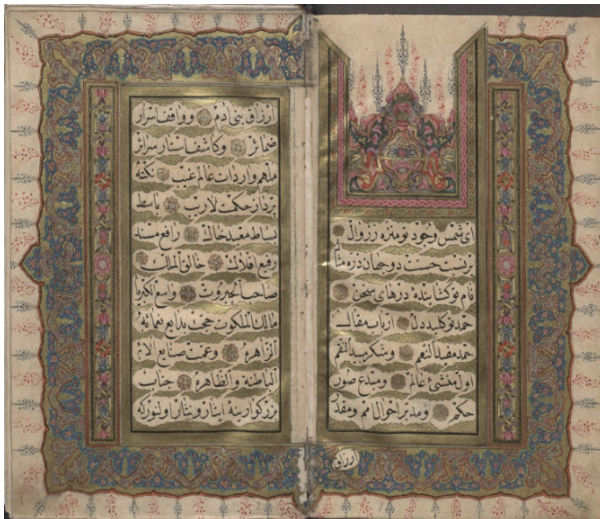 ای شمس وجود تو منزه ز زوال
حسنت دو جهان ذره مثال
نام تو کشاینده درهای سخن
حمد تو کلید دل ارباب مقال
حمد مفید النعم و شکر مبید النقم
اول منشئ عالم و مبدع صور
حکم و مدبر احوال امم و مقدر
ارزاق
ارزاق بنی آدم و واقف اسرار
ضمائر و کاشف استار سرائر
ملهم واردات عالم غیب نکته
پرداز حکمت لاریب باسط
بساط خاک رافع مسند
رفیع افلاک خالق الملک
صاحب الجبروت واسع الکبریا
مالک الملکوت بدایع نعمائه
الزاهره وعمت صنایع
الباطنة والظاهرة جناب
بزرکوارینه ایثار و نثار اولنور که